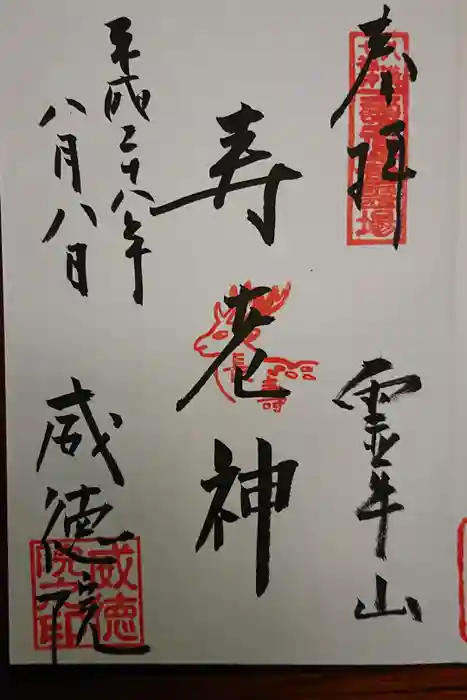 奉拝
霊牛山
寿老神
長寿
平成二十八年
八月八日
威徳院
威徳院